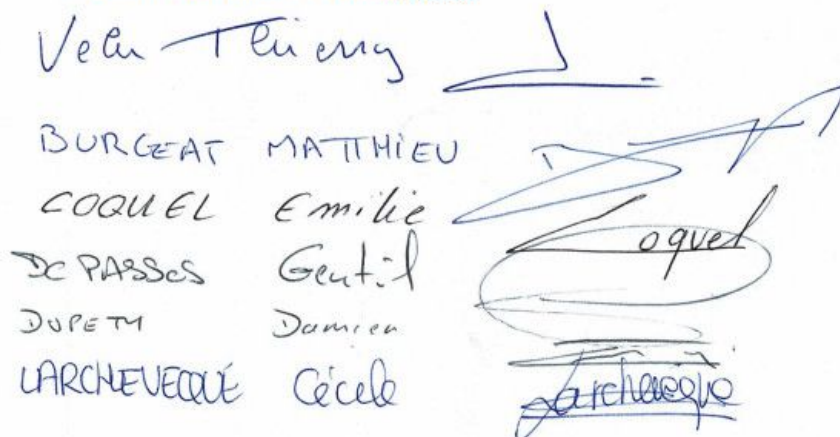 Velu Thierry
BURGEAT MATTHIEU
COQUEL Emilie Coquel
DE PASSOS Gentil
Damien
LARCHEVEQUE Cécile Larchevêque